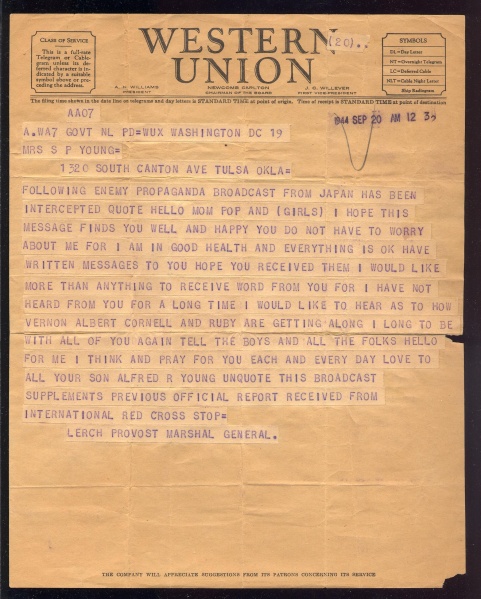 WESTERN UNION
(20)..
CLASS OF SERVICE
This is a full-rate
Telegram or Cable-
gram unless its de-
ferred character is in-
dicated by a suitable
symbol above or pre-
ceding the address.
A. N. WILLIAMS
PRESIDENT
NEWCOMB CARLTON
CHAIRMAN OF THE BOARD
J. C. WILLEVER
FIRST VICE-PRESIDENT
SYMBOLS
DL=Day Letter
NT=Overnight Telegram
LC=Deferred Cable
NLT=Cable Night Letter
Ship Radiogram
The filing time shown in the date line on telegrams and day letters is STANDARD TIME at point of origin. Time of receipt is STANDARD TIME at point of destination
AA07
1944 SEP 20 AM 12 3
A.WA7 GOVT NL PD=WUX WASHINGTON DC 19
MRS S P YOUNG=
1320 SOUTH CANTON AVE TULSA OKLA=
FOLLOWING ENEMY PROPAGANDA BROADCAST FROM JAPAN HAS BEEN
INTERCEPTED QUOTE HELLO MOM POP AND (GIRLS) I HOPE THIS
MESSAGE FINDS YOU WELL AND HAPPY YOU DO NOT HAVE TO WORRY
ABOUT ME FOR I AM IN GOOD HEALTH AND EVERYTHING IS OK HAVE
WRITTEN MESSAGES TO YOU HOPE YOU RECEIVED THEM I WOULD LIKE
MORE THAN ANYTHING TO RECEIVE WORD FROM YOU FOR I HAVE NOT
HEARD FROM YOU FOR A LONG TIME I WOULD LIKE TO HEAR AS TO HOW
VERNON ALBERT CORNELL AND RUBY ARE GETTING ALONG I LONG TO BE
WITH ALL OF YOU AGAIN TELL THE BOYS AND ALL THE FOLKS HELLO
FOR ME I THINK AND PRAY FOR YOU EACH AND EVERY DAY LOVE TO
ALL YOUR SON ALFRED R YOUNG UNQUOTE THIS BROADCAST
SUPPLEMENTS PREVIOUS OFFICIAL REPORT RECEIVED FROM
INTERNATIONAL RED CROSS STOP=
LERCH PROVOST MARSHAL GENERAL.
THE COMPANY WILL APPRECIATE SUGGESTIONS FROM ITS PATRONS CONCERNING ITS SERVICE